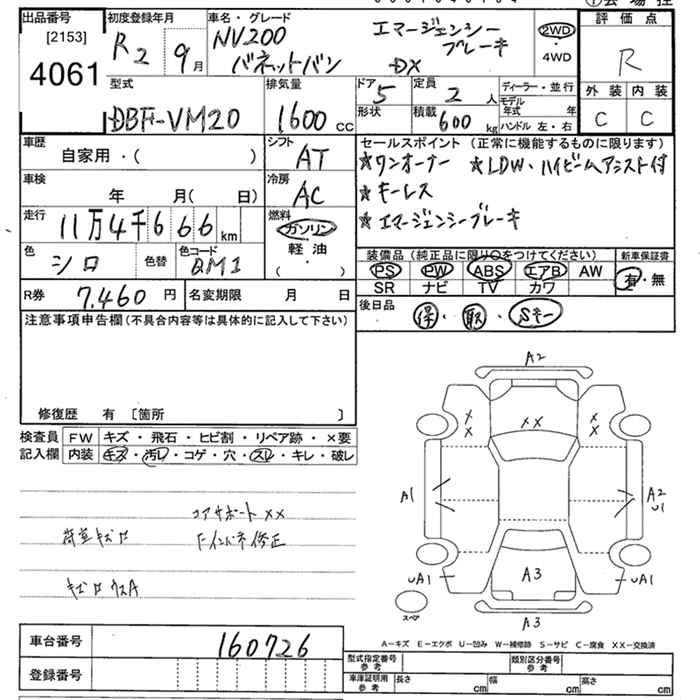 出品番号 初度登録年月 車名・グレード
[2153]
4061
R2 9月
NV200 バネットバン DX
エマージェンシーブレーキ
2WD・4WD
評価点
R
外装 内装
C C
型式 排気量 ドア形状 定員 ディーラー・並行
DBF-VM20 1600cc 5 2人
モデル年式 年
積載 600kg ハンドル 左・右
車歴 シフト セールスポイント (正常に機能するものに限ります)
自家用・( ) AT
★ワンオーナー ★LDW、ハイビームアシスト付
車検 冷房 ★キーレス
年 月(日) AC
走行 燃料 ★エマージェンシーブレーキ
11万4千666km ガソリン・軽油・( )
色 色替 色コード
シロ QM1
装備品 (純正品に限り〇をつけてください) 新車保証書
PS PW ABS エアB AW 有・無
SR ナビ TV カワ
R券 7,460円 名変期限 月 日
後日品 保・取・Sキー
注意事項申告欄 (不具合内容等は具体的に記入して下さい)
修復歴 有 [箇所 ]
検査員 FW キズ・飛石・ヒビ割・リペア跡・×要
記入欄 内装 キズ・汚レ・コゲ・穴・スレ・キレ・破レ
コアサポートXX
荷室キズロ
A2
XX
A1
A2
U1
UA1 A3 UA1
スペア
A3
A-キズ E-エクボ U-凹み W-補修跡 S-サビ C-腐食 XX-交換済
車台番号 160726
登録番号
型式指定番号 参考 類別区分番号 参考
車庫証明用 参考 長さ cm 幅 cm 高さ cm